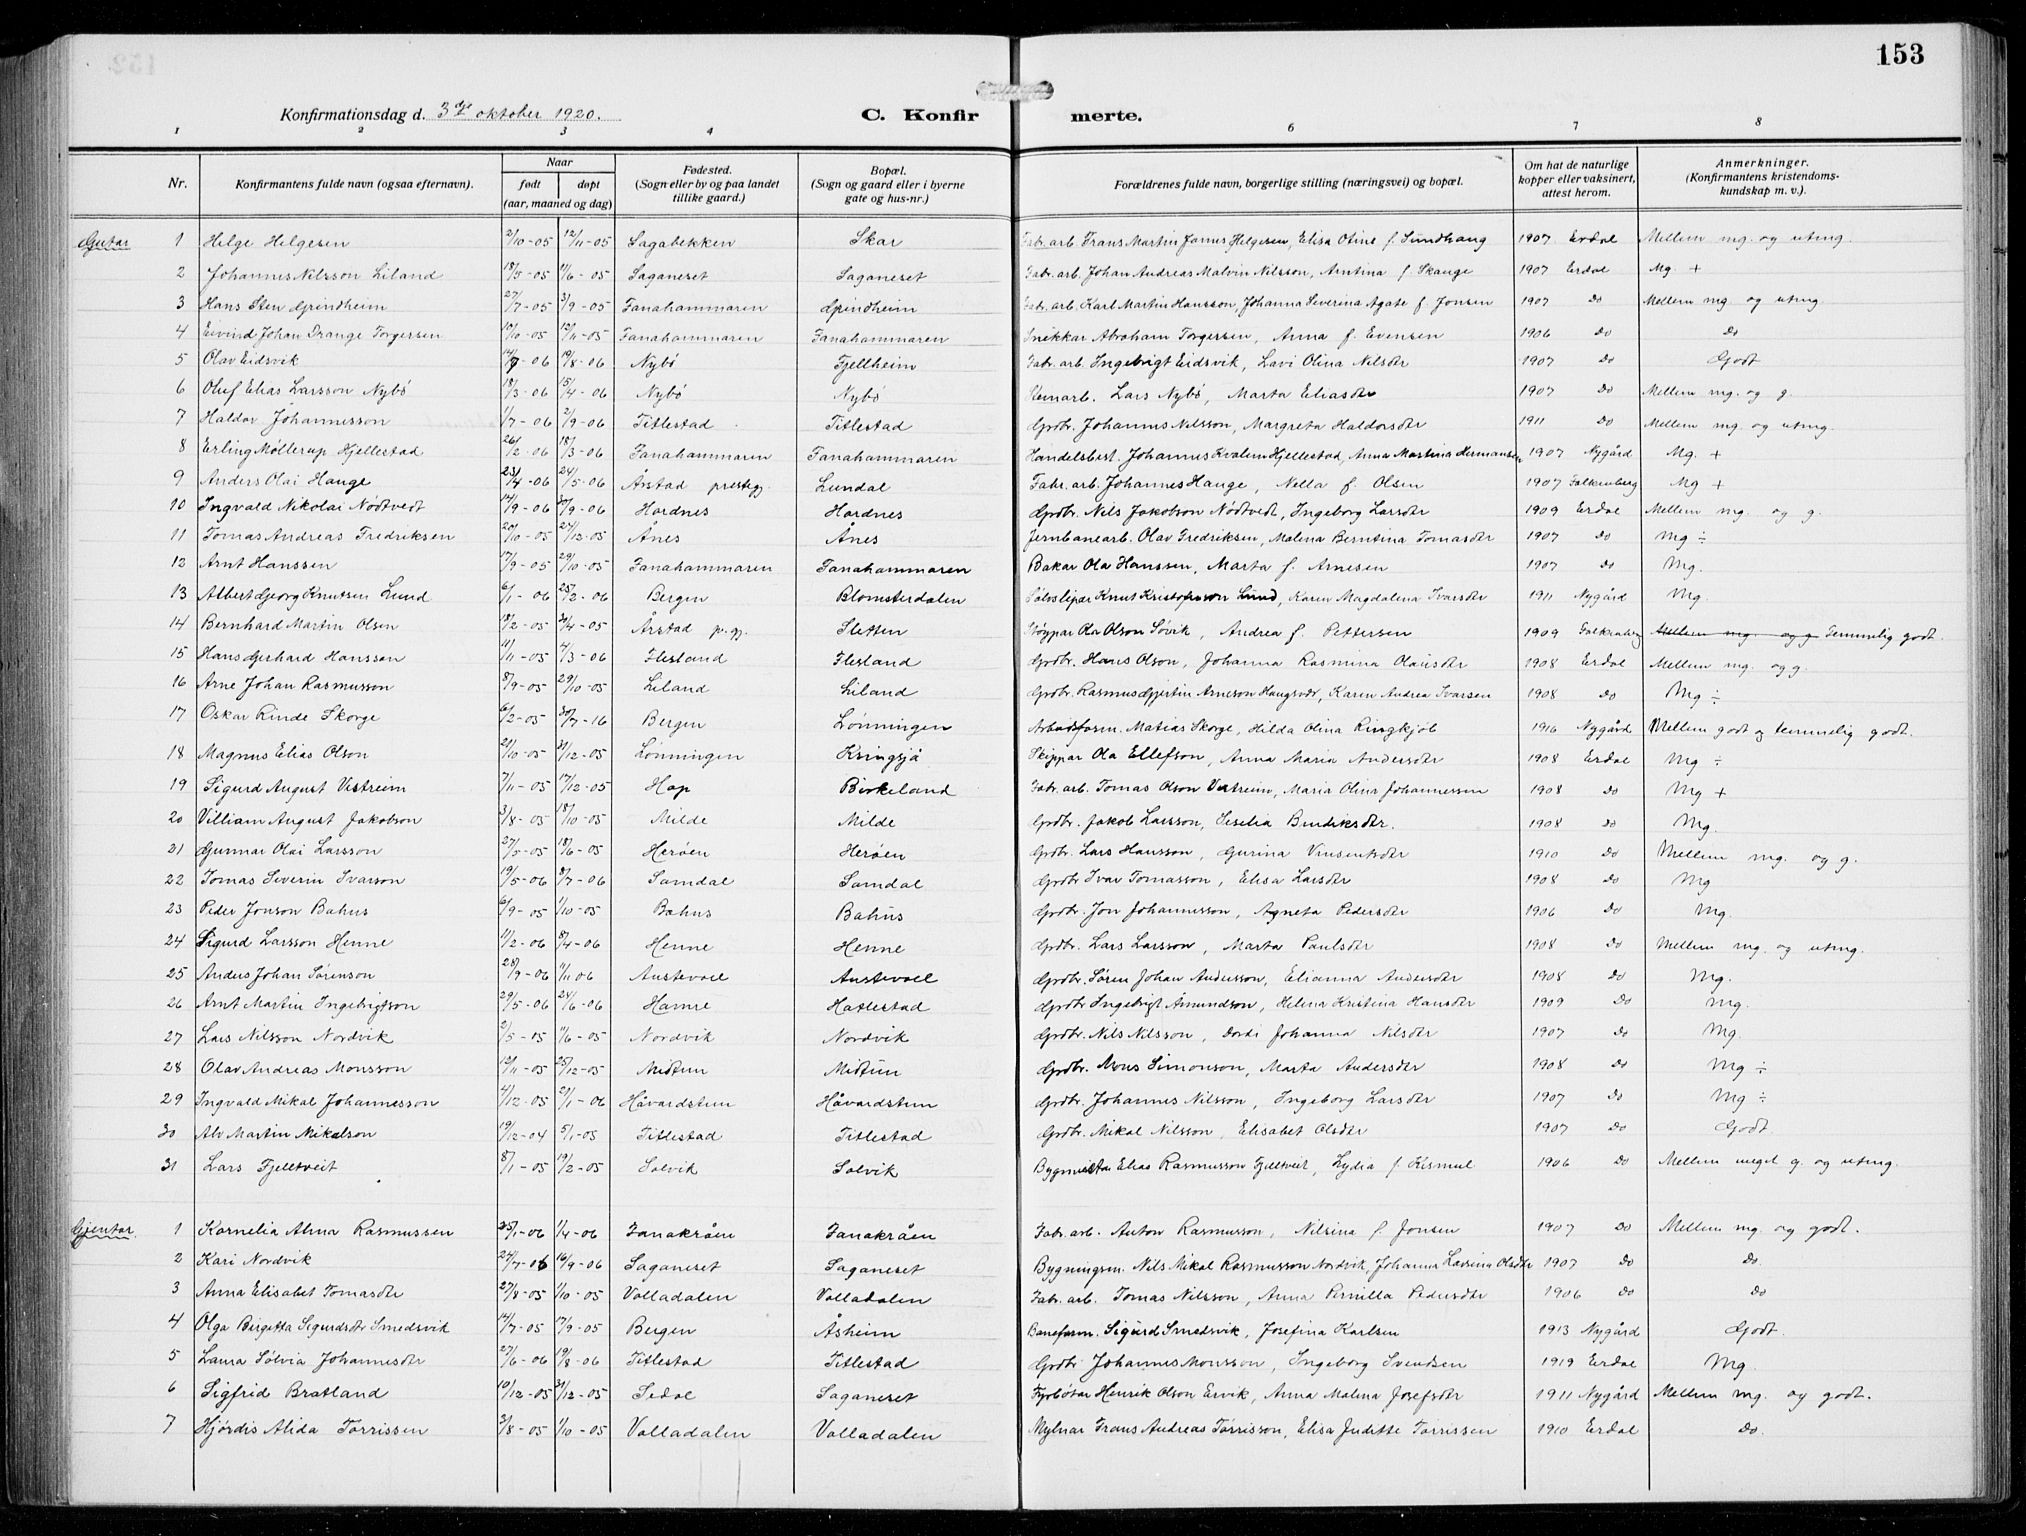 153
Konfirmationsdag d. 3dje oktober 1920. C. Konfirmerte.
1 2 3 4 6 7 8
Nr. Konfirmantens fulde navn (ogsaa efternavn). Naar født døpt (aar, maaned og dag) Fødested. (Sogn eller by og paa landet tillike gaard.) Bopæl. (Sogn og gaard eller i byerne gate og hus-nr.) Forældrenes fulde navn, borgerlige stilling (næringsvei) og bopæl. Om hat de naturlige kopper eller vaksinert, attest herom. Anmerkninger. (Konfirmantens kristendomskundskap m. v.).
Gutar 1 Helge Helgesen 2/10-05 12/11-05 Sagabekken Skar Fabr. arb. Frans Martin James Helgesen, Elisa Oline f. Sundhaug 1907 Erdal Mellem mg. og utmg.
2 Johannes Nilsson Liland 18/5-05 11/6-05 Saganeset Saganeset Fabr. arb. Johan Andreas Malvin Nilsson, Arntina f. Skauge 1907 Erdal Mg. +
3 Hans Sten Grindheim 27/7-05 3/9-05 Fanahammaren Grindheim Fabr. arb. Karl Martin Hansson, Johanna Severina Agate f. Jonsen 1907 Do Mellem mg. og utmg
4 Eivind Johan Drange Torgersen 10/10-05 12/11-05 Fanahammaren Fanahammaren Snekkar Abraham Torgersen, Anna f. Evensen 1906 Do Do
5 Olav Eidsvik 19/8-06 Nybø Fjellheim Fabr. arb. Ingebrigt Eidsvik, Lavi Olina Nilsdtr 1907 Do Godt
6 Oluf Elias Larsson Nybø 18/3-06 15/4-06 Nybø Nybø Stenarb. Lars Nybø, Marta Eliasdtr 1907 Do Mellem mg. og g.
7 Haldor Johannesson 1/7-06 2/9-06 Titlestad Titlestad Grdbr. Johannes Nilsson, Margreta Haldorsdtr 1911 Do Mellem mg. og utmg.
8 Erling Møllerup Hjellestad 26/2-06 18/3-06 Fanahammaren Fanahammaren Handelsbest. Johannes Kvalem Hjellestad, Anna Martina Hermansen 1907 Nygård Mg. +
9 Anders Olai Hauge 23/4-06 24/5-06 Årstad prestegj. Lundal Fabr. arb. Johannes Hauge, Nella f. Olsen 1907 Falkenberg Mg +
10 Ingvald Nikolai Nødtvedt 14/9-06 30/9-06 Hordnes Hordnes Grdbr. Nils Jakobson Nødtvedt, Ingeborg Larsdtr 1909 Erdal Mellem mg. og g.
11 Tomas Andreas Fredriksen 20/10-05 27/12-05 Ånes Ånes Jernbanearb. Olav Fredriksen, Malena Berntina Tomasdtr 1907 Do Mg ÷
12 Arnt Hanssen 17/9-05 29/10-05 Fanahammaren Fanahammaren Bakar Ola Hanssen, Marta f. Arnesen 1907 Do Mg.
13 Albert Georg Knutsen Lund 6/1-06 25/2-06 Bergen Blomsterdalen Sølvslipar Knut Kristoferson Lund, Karen Magdalena Ivarsdtr 1911 Nygård Mg.
14 Bernhard Martin Olsen 18/2-05 30/4-05 Årstad p.gj. Sletten Støypar Ola Olson Søvik, Andrea f. Pettersen 1909 Falkenberg Mellem mg. og g Temmelig godt.
15 Hans Gerhard Hansson 11/11-05 4/3-06 Flesland Flesland Grdbr. Hans Olson, Johanna Rasmina Olaisdtr 1908 Erdal Mellem mg. og g.
16 Arne Johan Rasmusson 8/9-05 29/10-05 Liland Liland Grdbr. Rasmus Gjertin Arneson, Karen Andrea Ivarsen 1908 do Mg ÷
17 Oskar Rinde Skorge 6/2-05 30/7-16 Bergen Lønningen Arbeidsform. Matias Skorge, Hilda Olina Ringkjøb 1916 Nygård Mellem godt og temmelig godt.
18 Magnus Elias Olson 21/10-05 31/12-05 Lønningen Kringsjå Skippar Ola Ellefson, Anna Maria Andersdtr 1908 Erdal Mg ÷
19 Sigurd August Vestreim 7/11-05 17/12-05 Hop Birkeland Fabr. arb. Tomas Olson Vestreim, Maria Olina Johannessen 1908 Do Mg +
20 Villiam August Jakobson 3/8-05 18/10-05 Milde Milde Grdbr. Jakob Larsson, Seselia Bendiksdtr. 1908 Do Mg.
21 Gunnar Olai Larsson 27/5-05 18/6-05 Herøen Herøen Grdbr. Lars Hansson, Gurina Vinsentsdtr 1910 Do Mellem mg. og g.
22 Tomas Severin Ivarson 19/5-06 8/7-06 Samdal Samdal Grdbr Ivar Tomasson, Elisa Larsdtr 1908 Do Mg
23 Peder Jonson Bahus 6/9-05 1/10-05 Bahus Bahus Grdbr. Jon Johannesson, Agneta Pedersdtr 1906 Do Mg.
24 Sigurd Larsson Henne 11/2-06 8/4-06 Henne Henne Grdbr. Lars Larsson, Marta Paulsdtr 1908 Do Mellem mg. og utmg.
25 Anders Johan Sørenson 28/9-06 11/11 06 Austevoll Austevoll Grdbr. Søren Johan Andersson, Elianna Andersdtr 1908 Do Mg.
26 Arnt Martin Ingebrigtson 29/5-06 24/6-06 Hamre Hatlestad Grdbr Ingebrigt Amundson, Helena Kristina Hansdtr 1909 Do Mg.
27 Lars Nilsson Nordvik 2/5-05 11/6-05 Nordvik Nordvik Grdbr. Nils Nilsson, Dorti Johanna Nilsdtr 1907 Do Mg.
28 Olav Andreas Monsson 19/11-05 25/12-05 Midtun Midtun Grdbr. Mons Simonson, Marta Andersdtr 1908 Do Mg ÷
29 Ingvald Mikal Johannesson 4/12-05 21/1-06 Håvardstun Håvardstun Grdbr. Johannes Nilsson, Ingeborg Larsdtr 1907 Do Mg ÷
30 Alv Martin Mikalson 19/12-04 5/1-05 Titlestad Titlestad Grdbr. Mikal Nilsson, Elisabet Olsdtr 1907 Do Godt
31 Lars Fjelltveit 8/1-05 19/2-05 Solvik Solvik Bygmester Elias Rasmusson Fjelltveit, Lydia f. Kismul 1906 Do Mellem meget g. og utmg.
Gjentar 1 Kornelia Alma Rasmussen 25/1-06 1/4-06 Fanakråen Fanakråen Fabr. arb. Anton Rasmusson, Nilsina f. Jonsen 1907 Do Mellem mg. og godt.
2 Kari Nordvik 24/7-06 16/9-06 Saganeset Saganeset Bygningsm. Nils Mikal Rasmusson Nordvik, Johanna Larsina Olsdtr 1907 Do Do.
3 Anna Elisabet Tomasdtr 27/8-05 1/10-05 Valladalen Valladalen Fabr. arb. Tomas Nilsson, Anna Pernilla Pedersdtr 1906 Do Do
4 Olga Birgetta Sigurdsdtr Smedsvik 14/7-05 17/9-05 Bergen Åsheim Baneform. Sigurd Smedsvik, Josefina Karlsen 1913 Nygård Godt.
5 Laura Sølvia Johannesdtr 27/6-06 19/8-06 Titlestad Titlestad Grdbr Johannes Monsson, Ingeborg Svendsen 1919 Erdal Mg.
6 Sigfrid Bratland 10/12-05 31/12-05 Sedal Saganeset Fyrbøtar Henrik Olson Ervik, Anna Malena Josefsdtr 1911 Nygård Mellem mg. og godt.
7 Hjørdis Alida Tørrissen 3/8-05 1/10-05 Valladalen Valladalen Mylnar Frans Andreas Tørrisson, Elisa Juditte Tørrissen 1910 Erdal Do.